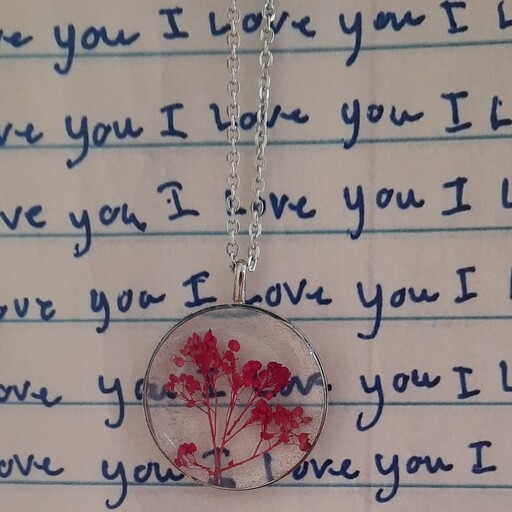 ve you I Love you I L
ve you I Love you I L
ve you I Love you I L
ove you I Love you I
ove you I Love you I L
ove you I Love you I